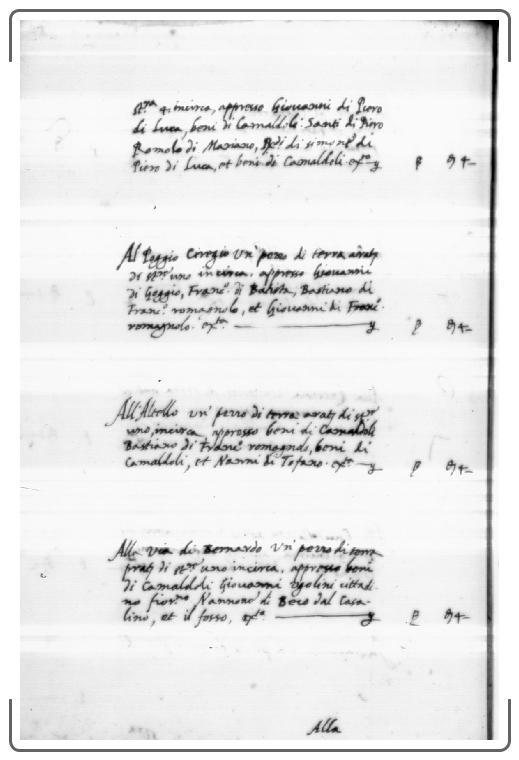 st.ra 4. incirca, appresso Giovanni di Piero
di Luca, beni di Camaldoli. Santi di Piero
Romolo di Mariano, Redi di simone di
Piero di Luca, et beni di Camaldoli. &c.a
Al Poggio Ciregio Un' pezzo di terra arat.
di st.ro uno incirca. appresso Giovanni
di Goggio, Franc.o di Batista, Bastiano di
Franc.o romagnolo, et Giovanni di Franc.o
romagnolo. &c.a
All'Altello un' pezzo di terra arat. di st.ro
uno, incirca, appresso beni di Camaldoli
Bastiano di Franc.o romagnolo, beni di
Camaldoli, et Nanni di Tofano. &c.a
Alla via di Bernardo Un' pezzo di terra
prat. di st.ro uno incirca, appresso beni
di Camaldoli Giovanni Ugolini cittadi-
no fior.no Nannone di Beco dal Casa-
lino, et il fosso, &c.a
Alla